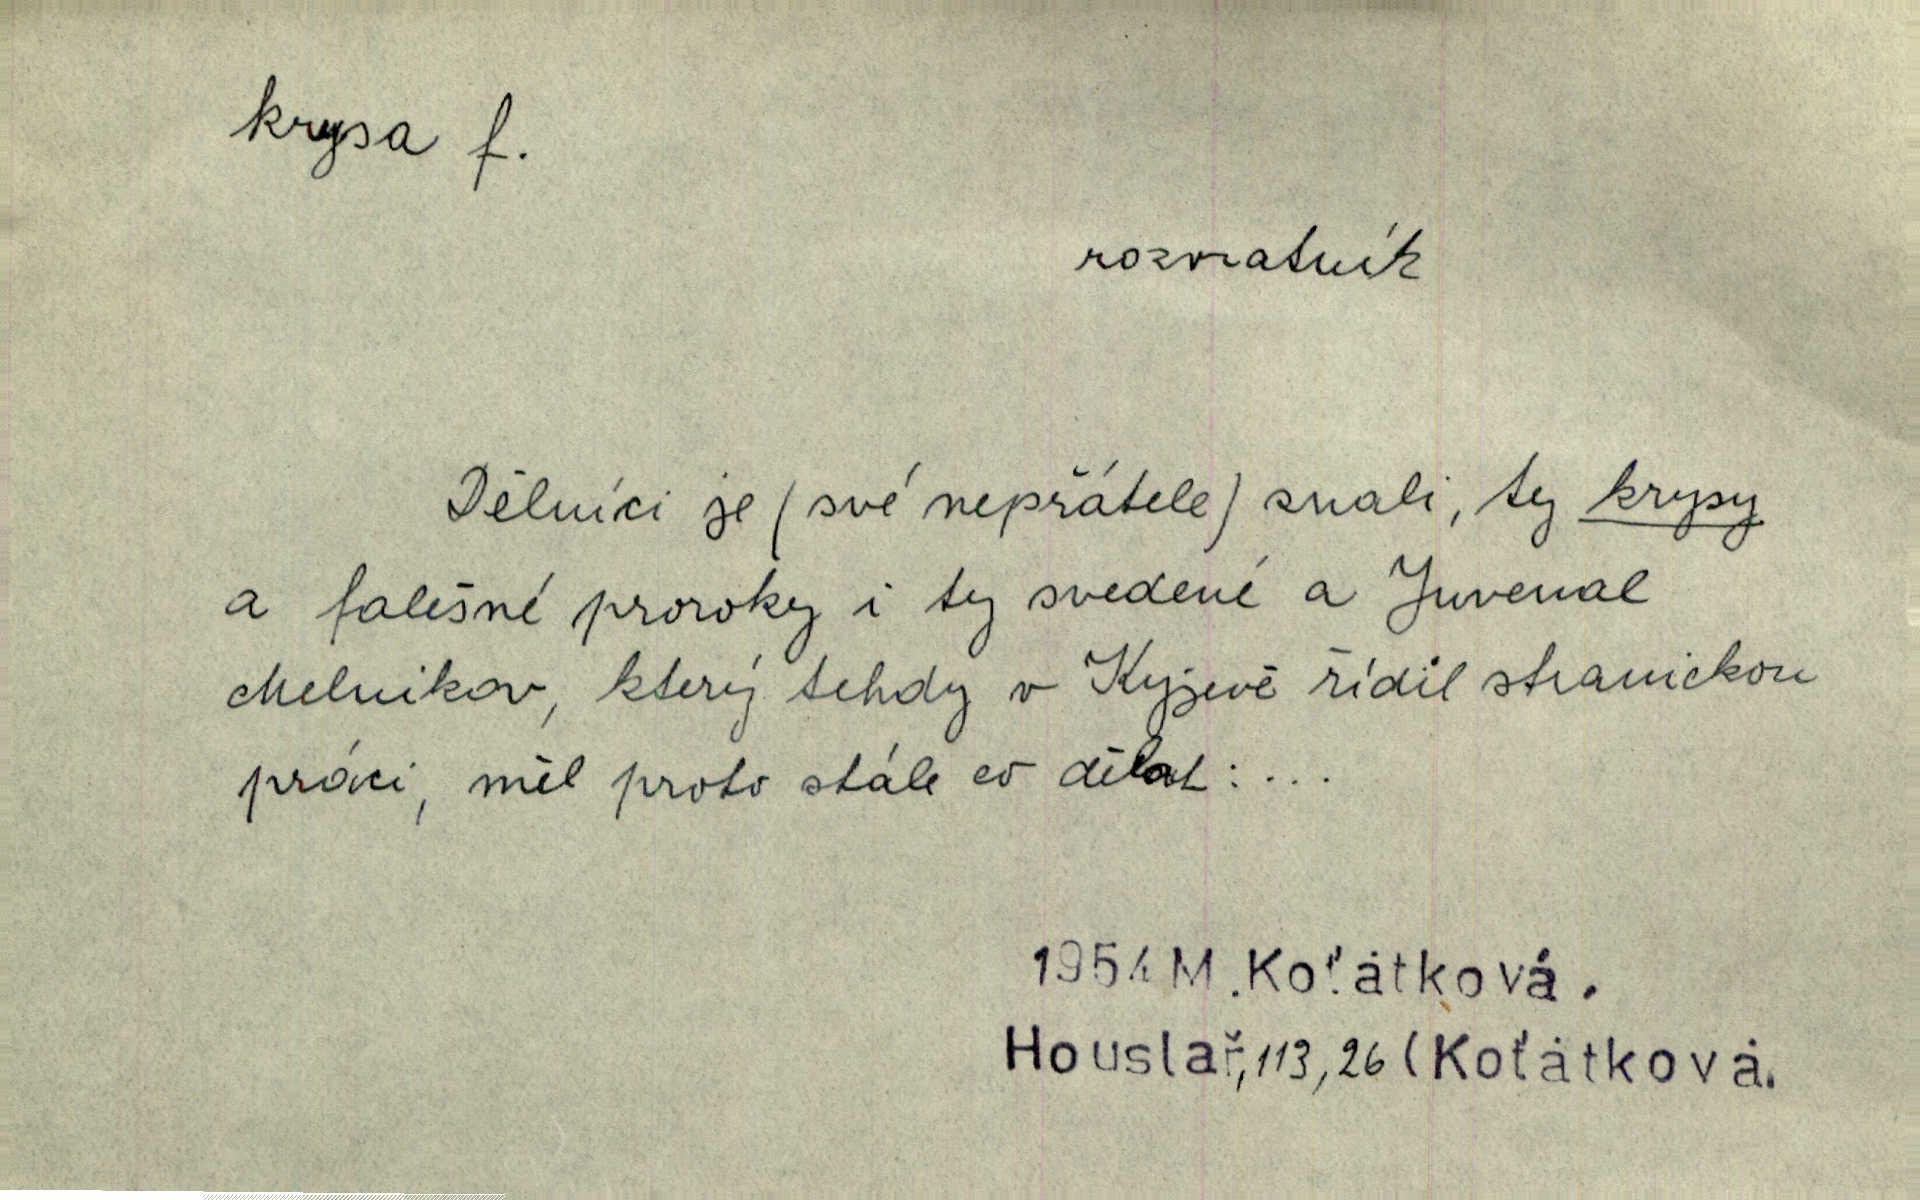 krysa f.
rozvratník
Dělníci je (své nepřátele) znali, ty krysy
a falešné proroky i ty svedené a Juvenal
Melnikov, který tehdy v Kyjevě řídil stranickou
práci, měl proto stále co dělat: ...
1954 M. Koťátková.
Houslař, 113, 26 (Koťátková.